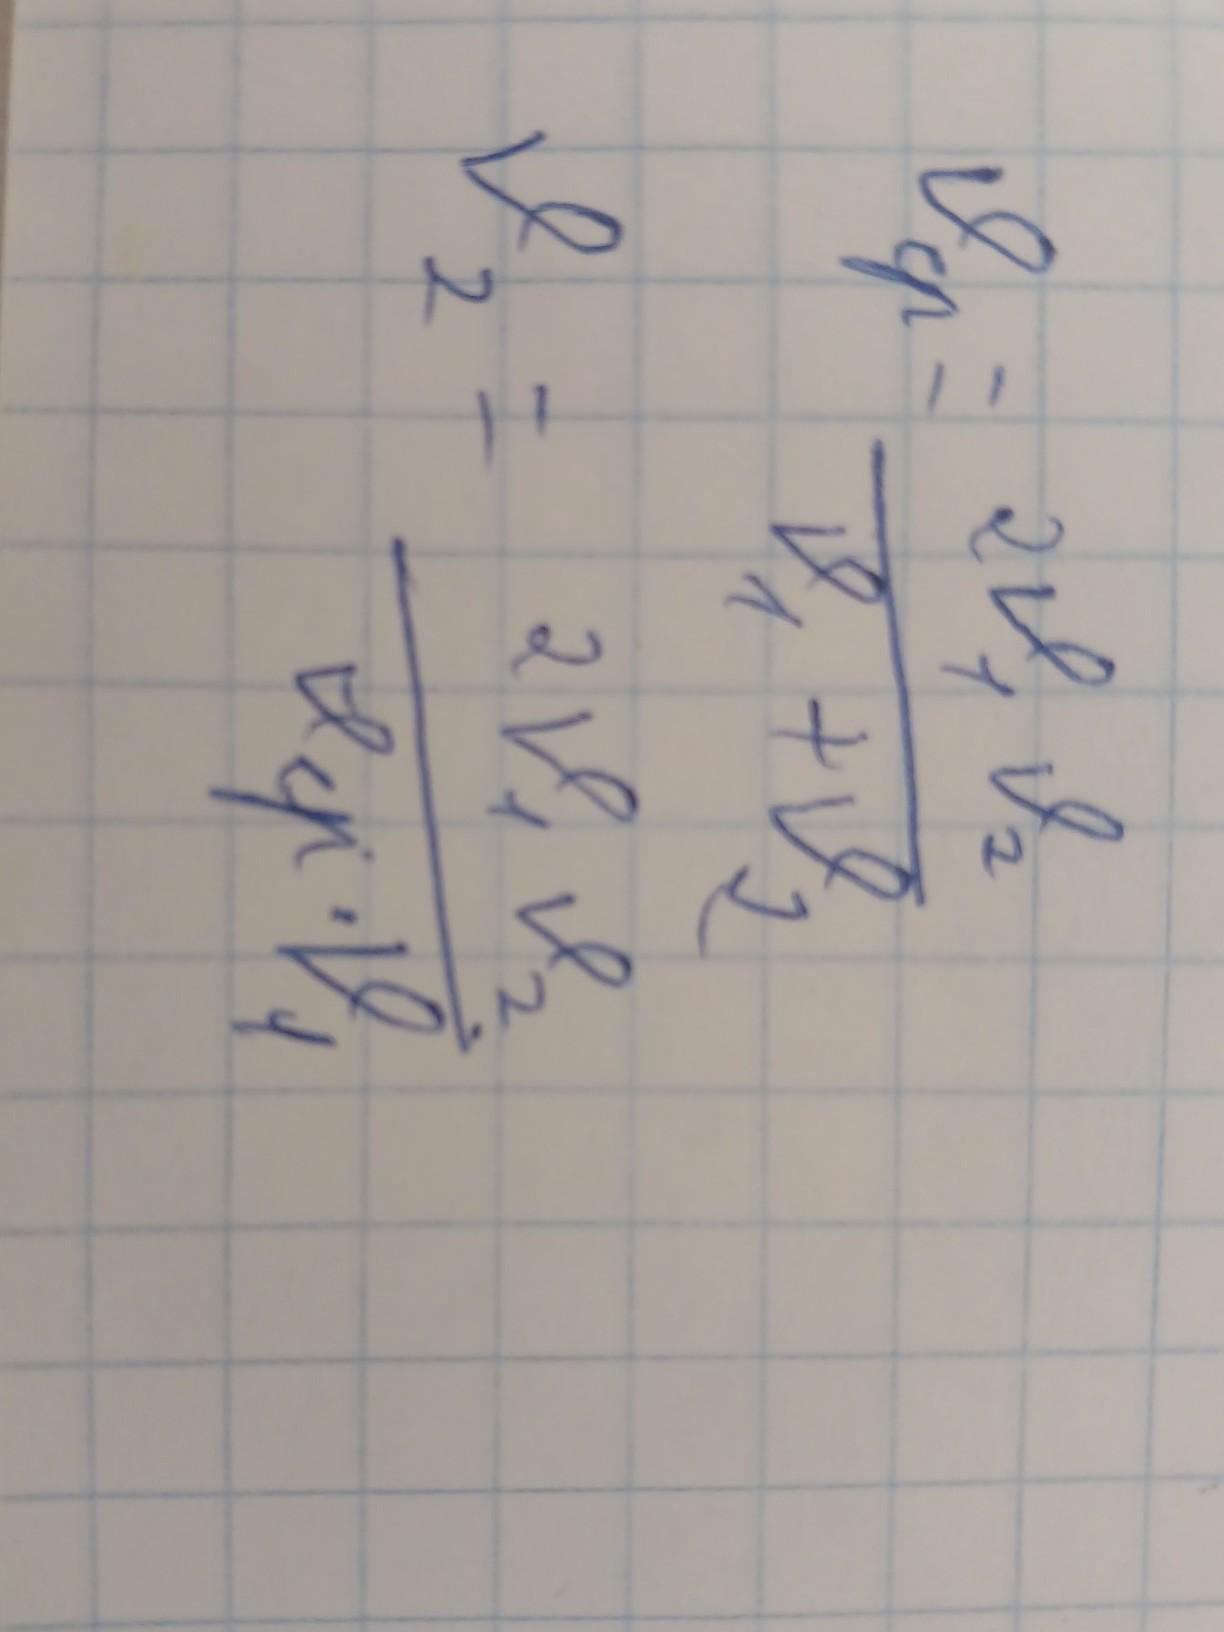 V ср = 2V₁V₂
V₁ + V₂
V₂ = 2V₁V₂
Vср · V₁